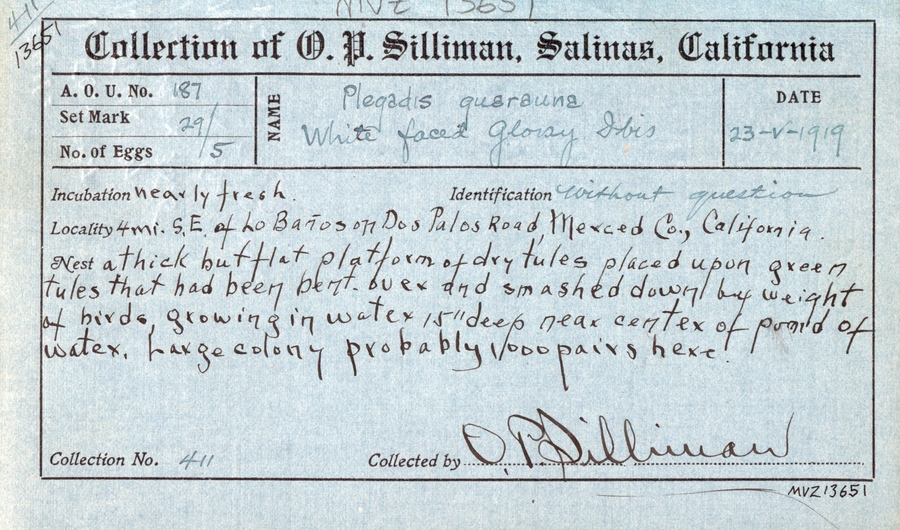 MVZ 13651
411
13651
Collection of O. P. Silliman, Salinas, California
A. O. U. No. 187
Set Mark 29/5
No. of Eggs
NAME
Plegadis guarauna
White faced Glossy Ibis
DATE
23-V-1919
Incubation nearly fresh. Identification Without question
Locality 4 mi. S.E. of Lo Baños on Dos Palos Road, Merced Co., California.
Nest a thick but flat platform of dry tules placed upon green
tules that had been bent over and smashed down by weight
of birds, growing in water 15" deep near center of pond of
water. Large colony probably 1000 pairs here.
Collection No. 411 Collected by O. P. Silliman
MVZ 13651